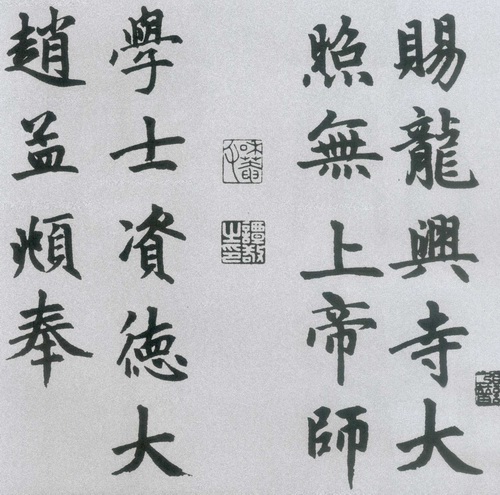 賜龍興寺大
照無上帝師
譚敬之印
學士資德大
趙孟頫奉